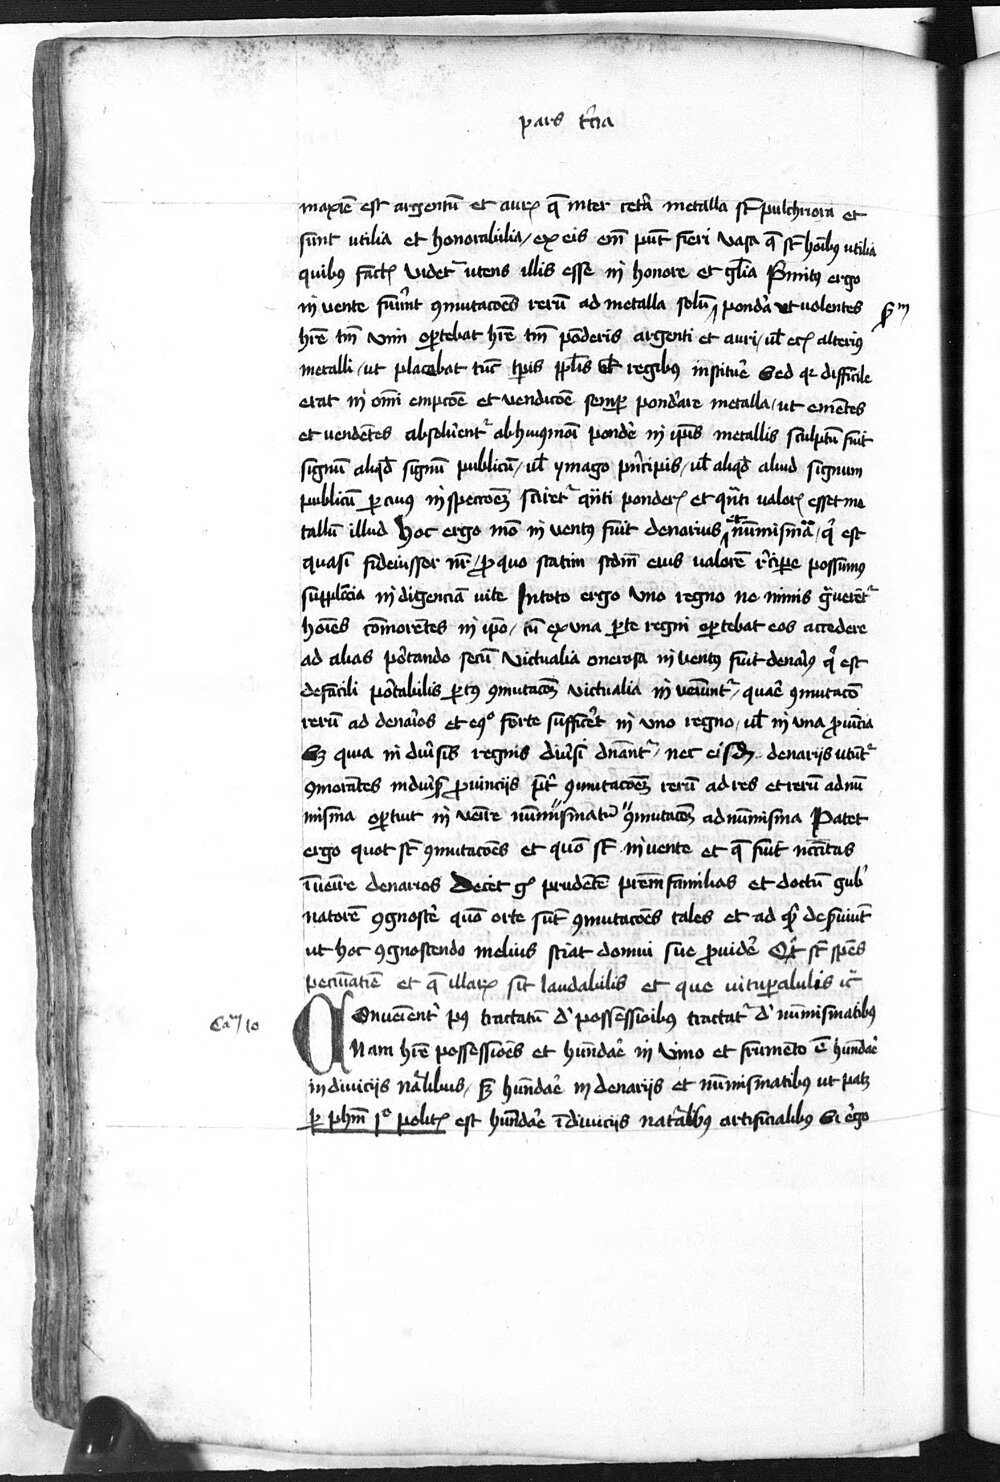 pars t̄cia
maxīe est argentū et aurꝝ q̄ inter cetā metalla st̄ pulchriora et
sunt utilia et honorabilia / ex eis em̄ pūt fieri vasa q̄ st̄ hoībus utilia
quibus factꝭ videt᷑ utens illis esse in honore et gl̄ia Primitus ergo
in vente fuer̄nt ꝯmutacōes rerū ad metalla solū pond̓a ut volentes
hr̄e tm̄ vini oꝑtebat hr̄e tm̄ pōderis argenti et auri / ul̄ ecꝭ alterius
metalli / ut placebat tūc tꝑis ppl̄is ul̄ regibus instituē Sed qꝛ difficile
erat in om̄i empcōe et vendicōe semꝑ pond̓are metalla / ut emētes
et vendētes absolūent᷑ ab huiusmōi pondē in ip̄is metallis sculptū fuit
signū aliqd̄ signū publicū / ul̄ ymago prīcipis / ul̄ aliqd̄ aliud signum
publicū ꝑ cuius inspectōeꝫ sciret᷑ qn̄ti ponderꝭ et qn̄ti valorꝭ esset me
tallū illud Hoc ergo mō in ventus fuit denarius ul̄ nūmisma / q̓ est
quasi fideiussor nr̄ / ꝓ quo statim scdm̄ eius valorē r̄cipe possumus
supplēcia in digenciā vite In toto ergo vno regno ne nimis gͣuarent᷑
hoīes cōmorātes in ip̄o / cū ex una ꝑte regni oꝑtebat eos accedere
ad alias portando secū victualia onerosa in ventus fuit denarius q̓ est
de facili portabilis ꝑ cuius ꝯmutacōeꝫ victualia in veniunt᷑ / quare ꝯmutaco
rerū ad denarios et eqͦ forte sufficēt in uno regno / ul̄ in una ꝓuīcia
Sꝫ quia in diu̓sis regnis diu̓si dn̄ant᷑ / nec eisdē denarijs utūt᷑
ꝯmorātes in diu̓sis ꝓuincijs p̄t̓ ꝯmutacōeꝫ rerū ad res et rerū ad nū
misma oꝑtuit in venire nūmismatū ꝯmutacōeꝫ ad nūmisma Patet
ergo quot st̄ ꝯmutacōes et quō st̄ in vente et q̄ fuit nccītas
īuenire denarios Decet gͦ prudētē prēmfamilias et doctū gub̓
natorē ꝯgnoscē quō orte sunt ꝯmutacōes tales et ad qͥd deseruiūt
ut hoc ꝯgnoscendo melius sciat domui sue ꝓuidē Qͦt st̄ spēs
pecuniatiē et q̄ illarꝝ sit laudabilis et que vituperabilis ic̄
Caᵐ / 10
Conueient᷑ pꝰ tractatū d̓ possessioībus tractat᷑ d̓ nūmismatibus
Nam hr̄e possessiōes et hūndaē in vino et frumēto ē hūndaē
in diuicijs nāalibus / sꝫ hūndaē in denarijs et nūmismatibus ut patꝫ
ꝑ phm̄ jͦ politꝭ est hūndaē ī diuicijs natalibus artificialibus Si ergo